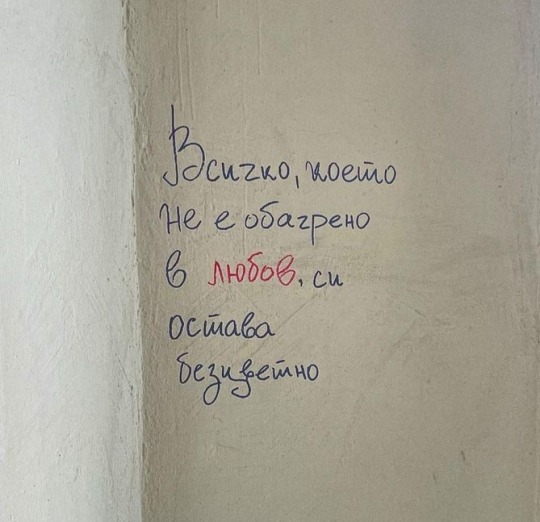 Всичко, което
не е обагрено
в любов, си
остава
безцветно